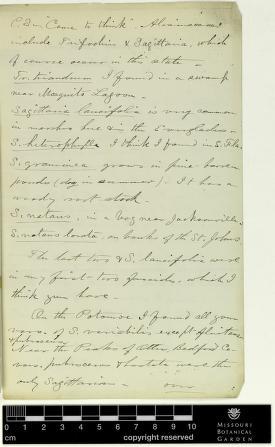 "Come to think" Alismaceae
include Triglochin & Sagittaria, which
of course occur in the state -
Tr. triandrum I found in a swamp
near Mosquito Lagoon -
Sagittaria lancifolia is very common
in marshes here & in the Everglades -
S. heterophylla I think I found in S. Fla.
S. graminea grows in pine barren
ponds (dry in summer) - It has a
woody root stock -
S. natans, in a bog near Jacksonville
S. natans lorata, on banks of the St. Johns
The last two & S. lancifolia were
in my first two fascicles, which I
think you have -
On the Potomac I found all your
vars. of S. variabilis, except
& pubescens
Near the Peaks of Otter, Bedford Co.
vars. pubescens & hastata were the
only Sagittarias -
over
cm
0 1 2 3 4 5 6 7 8 9 10
copyright reserved
MISSOURI
BOTANICAL
GARDEN